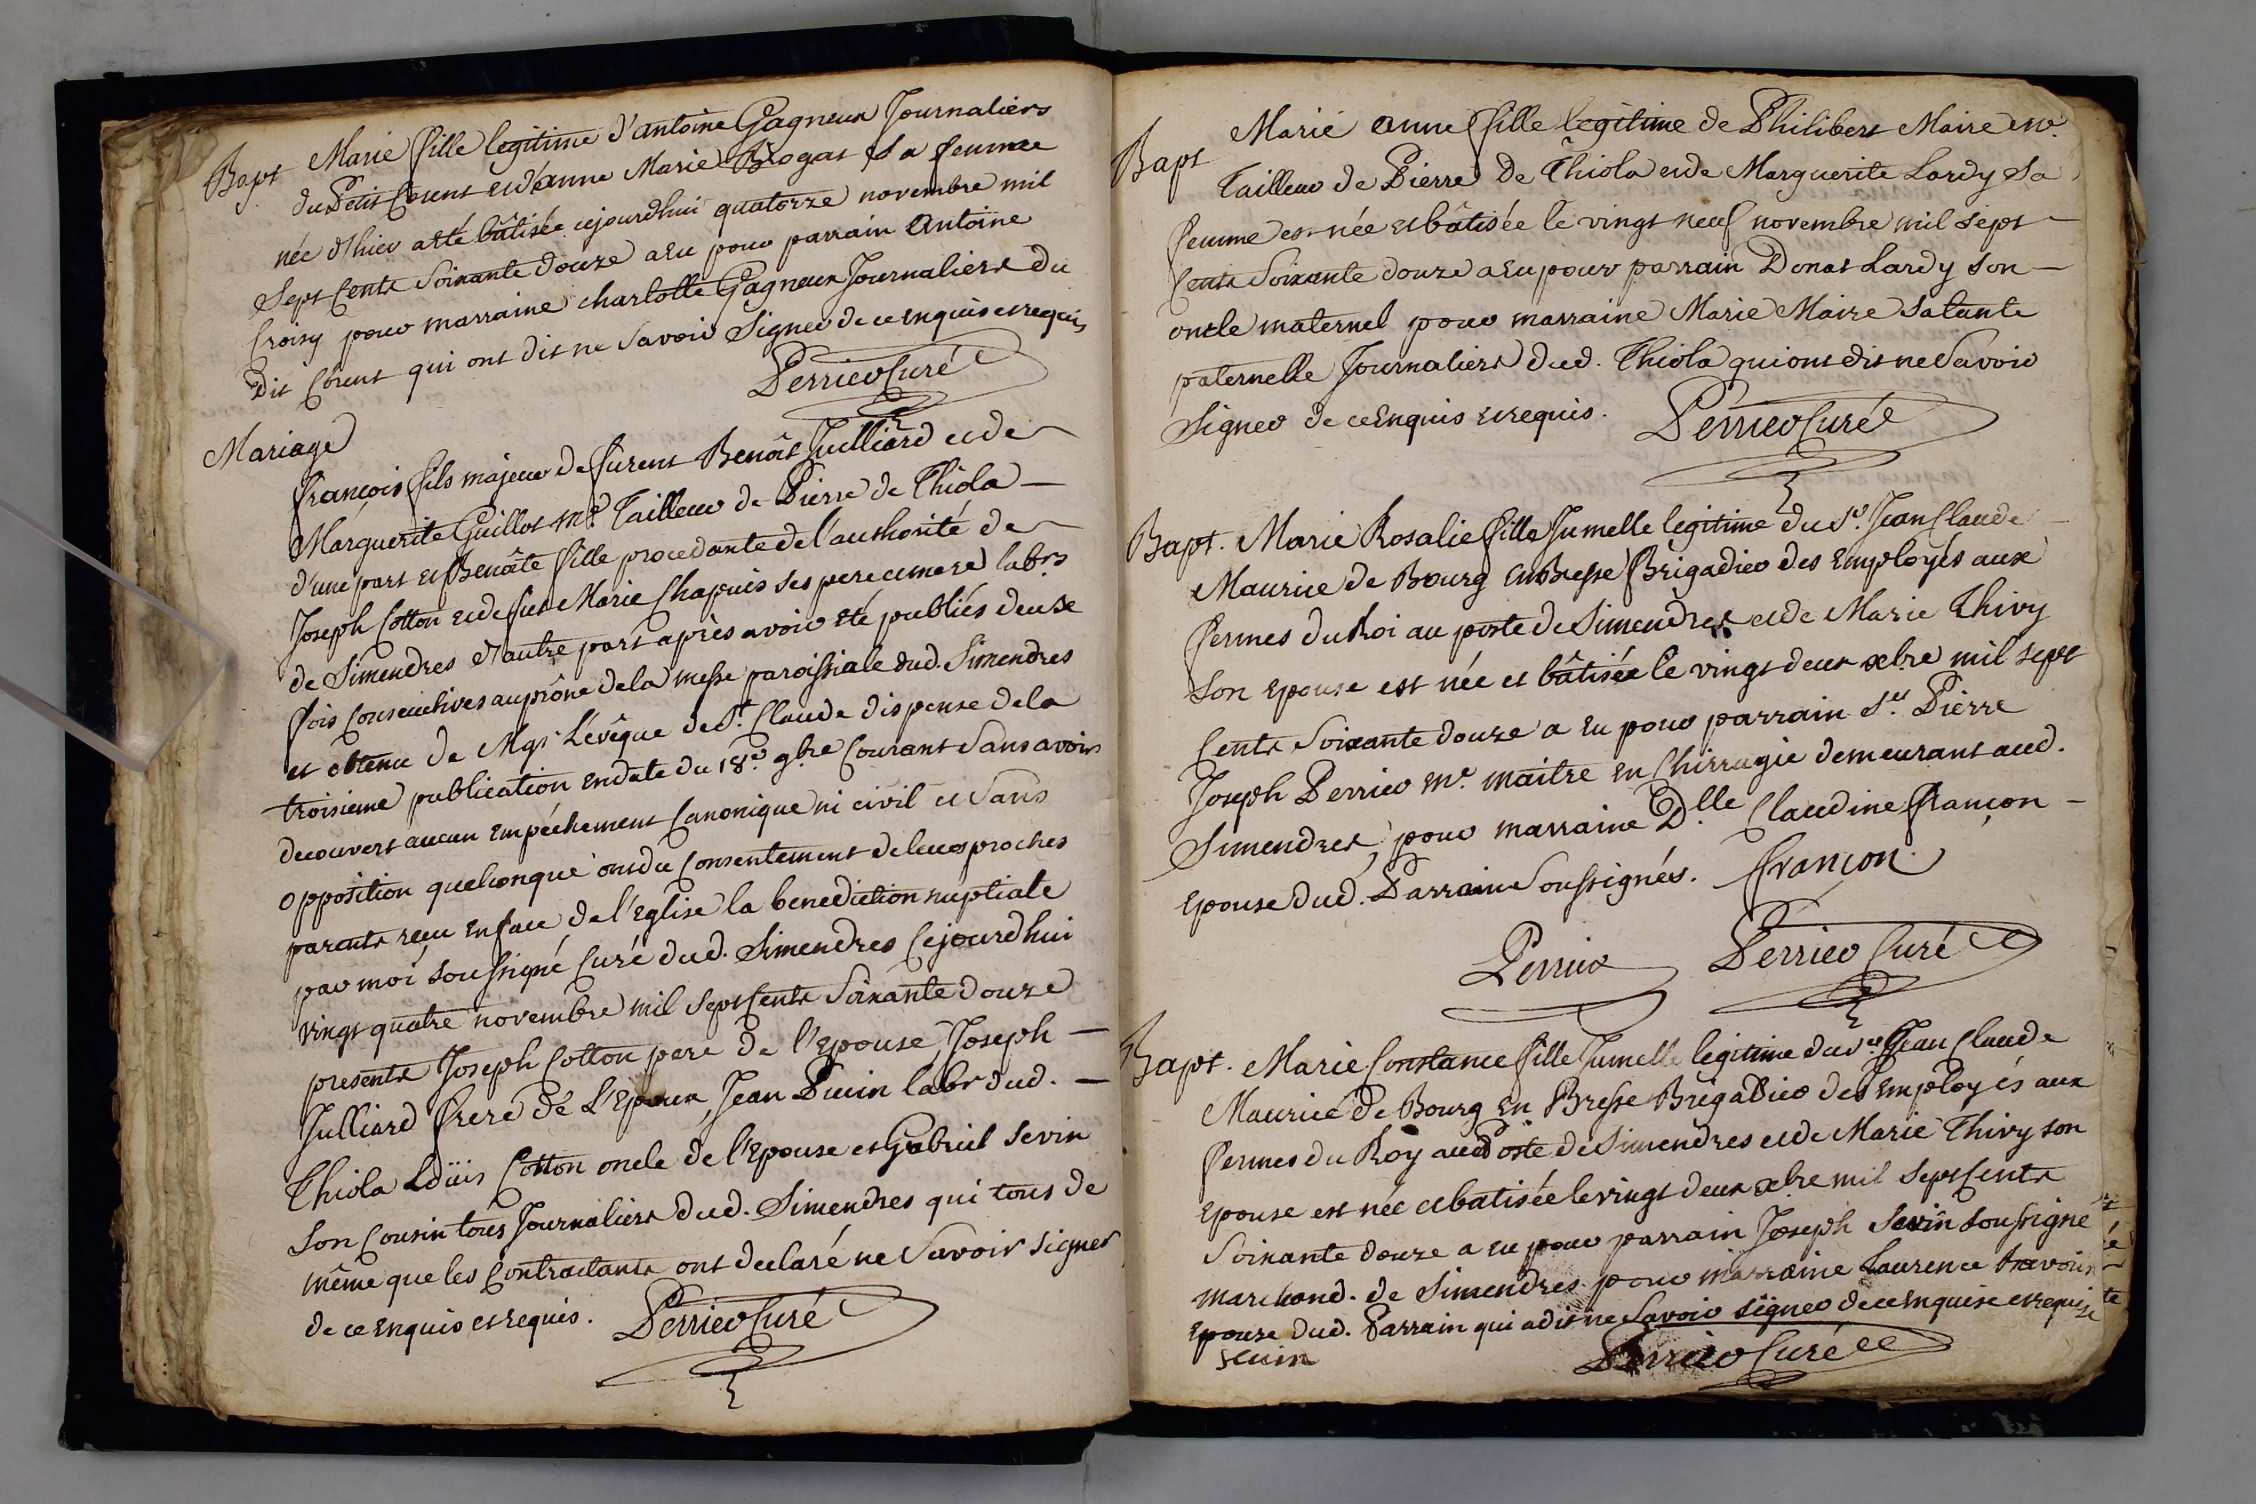 Bapt Marie fille legitime d'antoine Gagneux Journaliers
du Petit Corent et d'anne Marie Brogat Sa femme
née d'hier a eté bâtisée cejourdhui quatorze novembre mil
Sept Cents Soixante douze a Eu pour parrain Antoine
Croisy pour marraine charlotte Gagneux Journaliers du
dit Corent qui ont dit ne Savoir Signer de ce enquis et requis
Perrier Curé
Mariage
françois fils majeur de furent Benoît Juilliard et de
Marguerite Guillot md. Tailleur de Pierre de Thiola
d'une part et Benoîte fille procedante de l'authorité de
Joseph Cotton et de fut Marie Chapuis Ses pere et mere labrs
de Simendres d'autre part après avoir eté publiés deuse
fois Consecutives au prône de la messe paroissiale dud. Simendres
et obtenu de Mgr L'évêque de St. Claude dispense de la
troisieme publication en date du 18e. 9bre Courant Sans avoir
decouvert aucun Empéchement Canonique ni civil et Sans
opposition quelconque ont du Consentement de leurs proches
parents reçu en face de l'Eglise la benediction nuptiale
par moi Soussigné Curé dud. Simendres Cejourdhui
vingt quatre novembre mil Sept Cents Soixante douze
presents Joseph Cotton pere de l'epouse, Joseph
Julliard frere de L'Epoux, Jean Puvin labr dud.
Thiola Loüis Cotton oncle de l'epouse et Gabriel Sevin
Son Cousin tous Journaliers dud. Simendres qui tous de
même que les Contractants ont declaré ne Savoir Signer
de ce enquis et requis. Perrier Curé
Bapt Marie anne fille legitime de Philibert Maire md.
Tailleur de Pierre de Thiola et de Marguerite Lardy Sa
femme est née et bâtisée le vingt neuf novembre mil Sept
Cents Soixante douze a Eu pour parrain Donat Lardy Son
oncle maternel pour marraine Marie Maire Sa tante
paternelle Journaliers dud. Thiola qui ont dit ne Savoir
Signer de ce Enquis et requis. Perrier Curé
Bapt. Marie Rosalie fille Jumelle legitime du Sr. Jean Claude
Maurice de Bourg en Bresse Brigadier des Employés aux
fermes du Roi au poste de Simendres et de Marie Thivy
Son Epouse est née et bâtisée le vingt deux xbre mil Sept
Cents Soixante douze a Eu pour parrain Sr. Pierre
Joseph Perrier me. maitre en Chirrugie demeurant aud.
Simendres, pour marraine D.lle Claudine françon
Epouse dud. Parrain Soussignés. françon
Perrier Perrier Curé
Bapt. Marie Constance fille Jumelle legitime du Sr. Jean Claude
Maurice de Bourg en Bresse Brigadier des Employés aux
fermes du Roy au Poste de Simendres et de Marie Thivy son
Epouse est née et batisée le vingt deux xbre mil Sept Cents
Soixante douze a Eu pour parrain Joseph Sevin Soussigné
marchand. de Simendres pour marraine Laurence travouin
Epouse dud. Parrain qui a dit ne Savoir Signer de ce enquise et requise
Sevin Perrier Curé